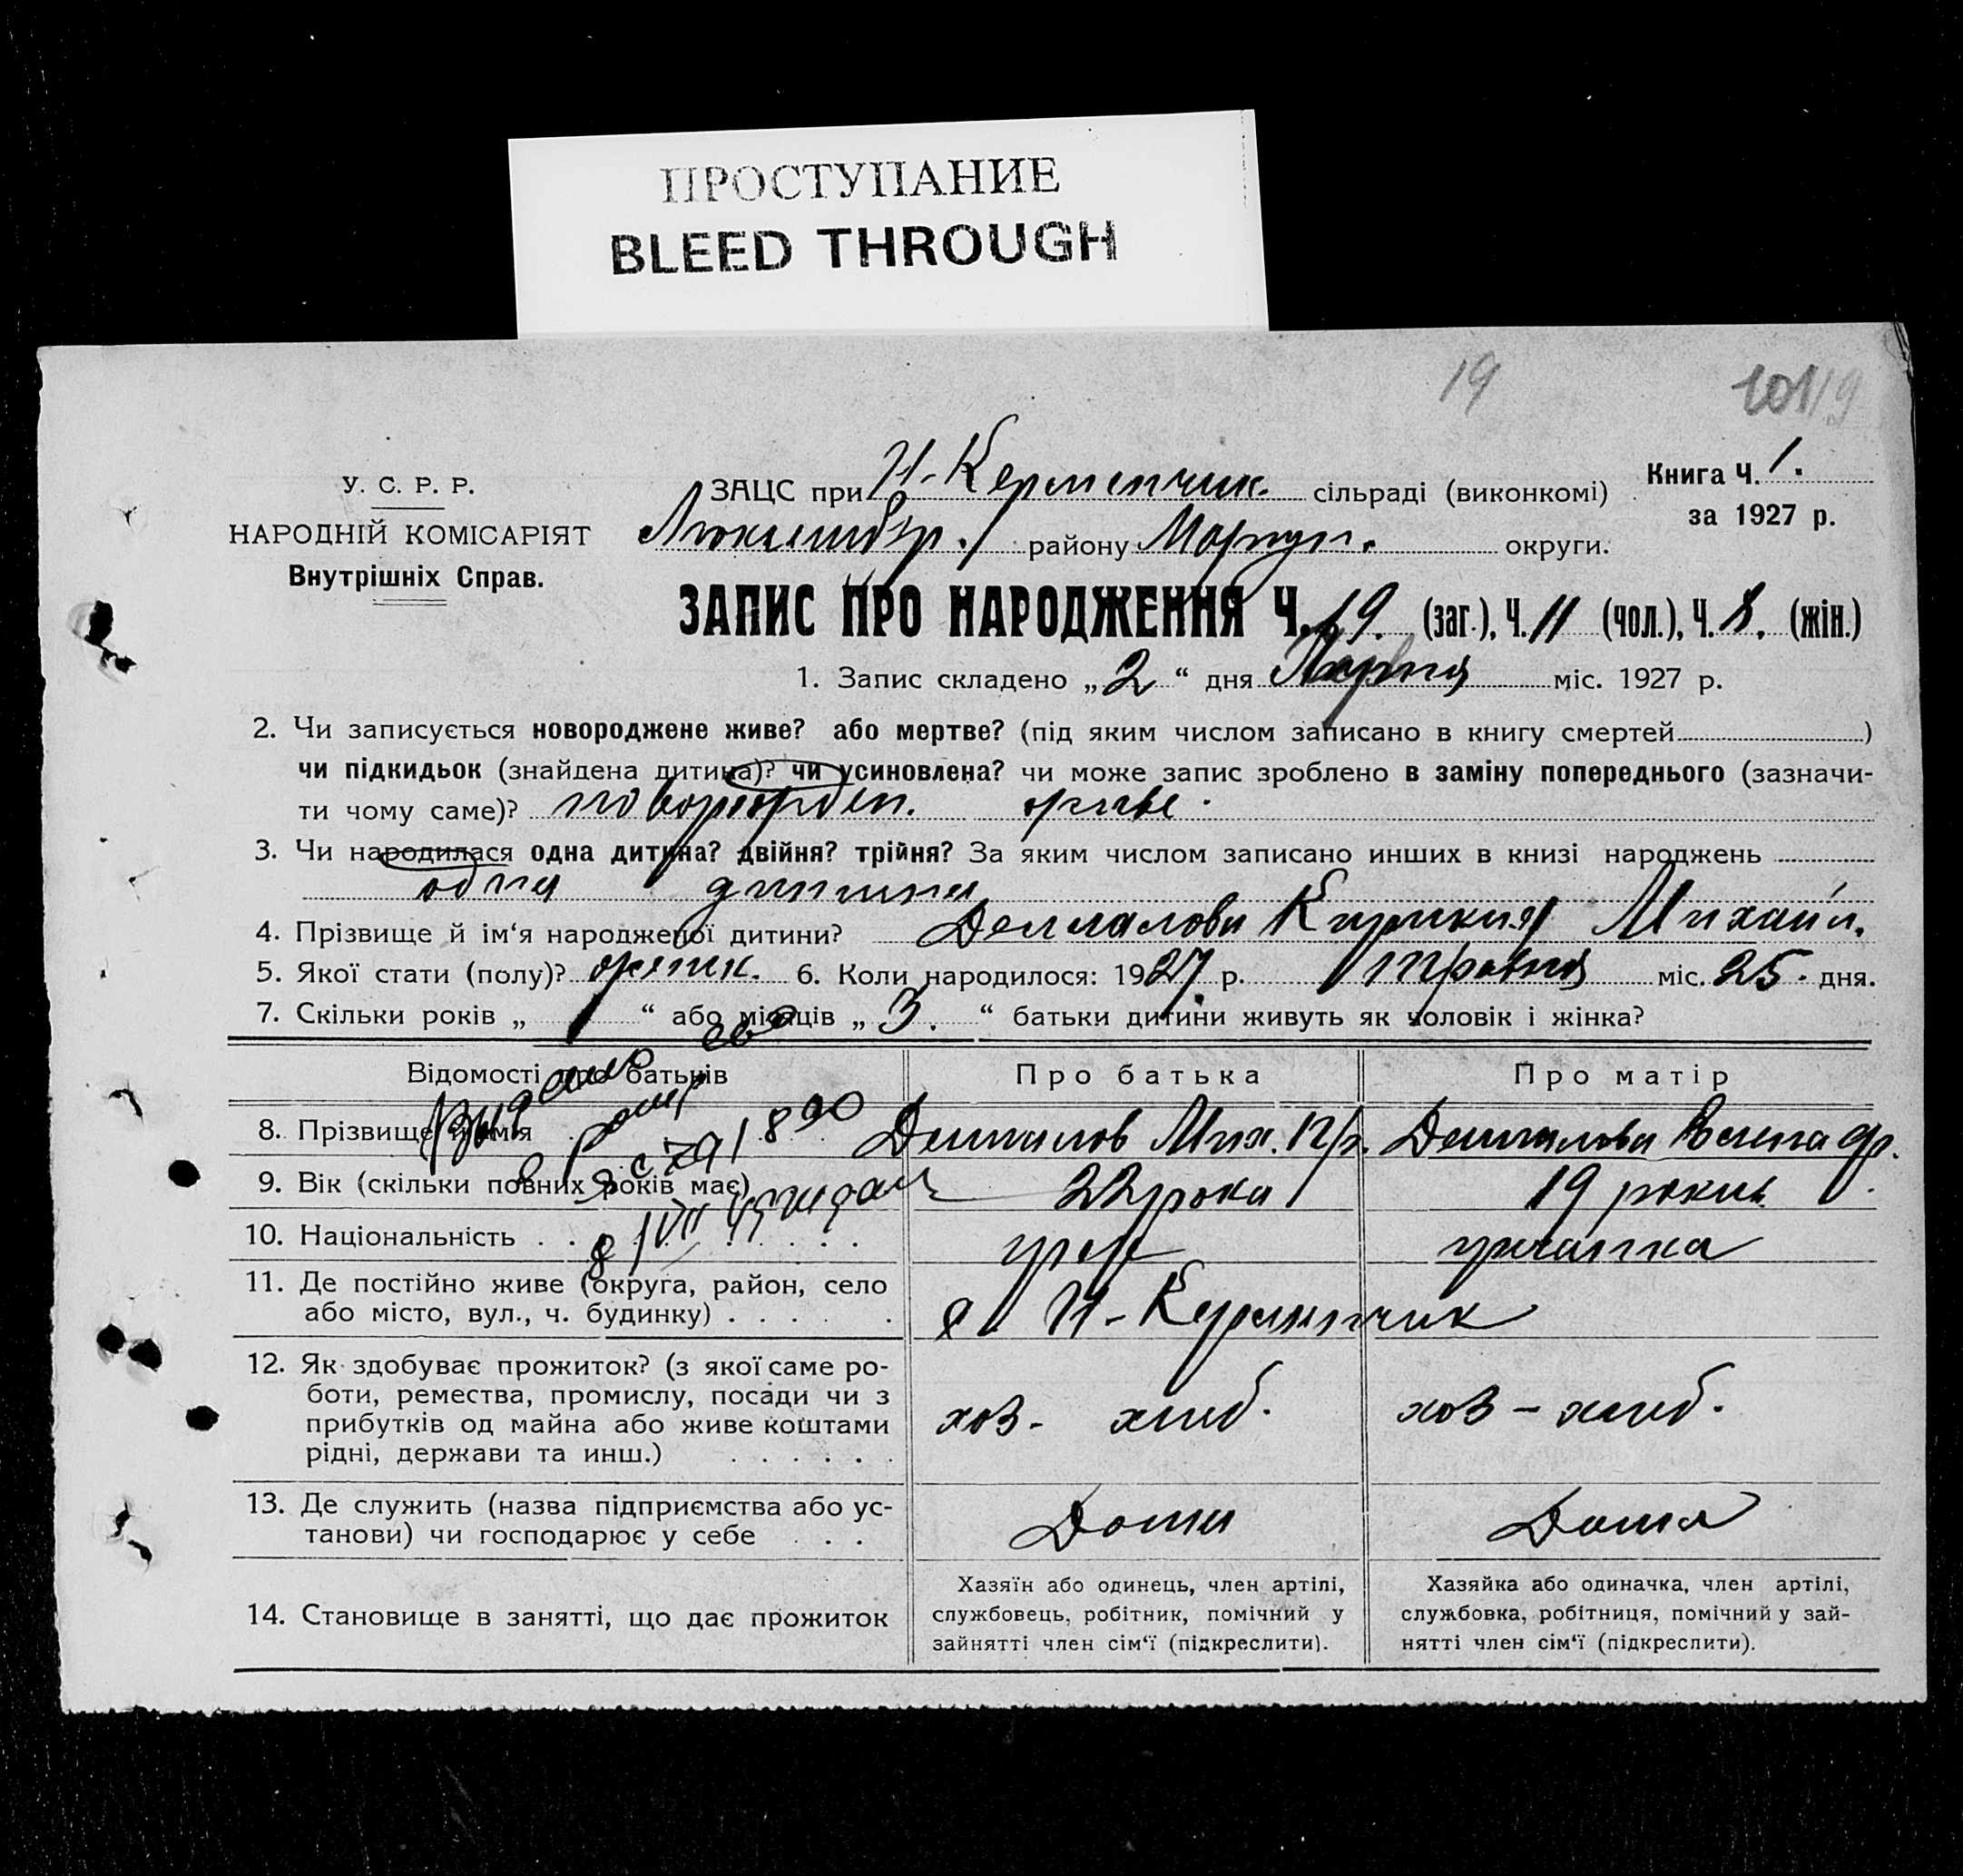 ПРОСТУПАНИЕ
BLEED THROUGH
19
101/19
У. С. Р. Р.
НАРОДНІЙ КОМІСАРІЯТ
Внутрішніх Справ.
ЗАЦС при Н-Керменчик. сільраді (виконкомі)
району Маріуп. округи.
Книга Ч. 1.
за 1927 р.
ЗАПИС ПРО НАРОДЖЕННЯ Ч. 19. (заг.), Ч. 11 (чол.), Ч. 8. (жін.)
1. Запис складено „ 2 “ дня міс. 1927 р.
2. Чи записується новороджене живе? або мертве? (під яким числом записано в книгу смертей )
чи підкидьок (знайдена дитина)? чи усиновлена? чи може запис зроблено в заміну попереднього (зазначи-
ти чому саме)? новорожден. живе.
3. Чи народилася одна дитина? двійня? трійня? За яким числом записано инших в книзі народжень
одна дитина
4. Прізвище й ім‘я народженої дитини? Михайл.
5. Якої стати (полу)? женск. 6. Коли народилося: 1927. р. травня міс. 25. дня.
7. Скільки років „ “ або місяців „ 3. “ батьки дитини живуть як чоловік і жінка?
Відомості про батьків
Про батька
Про матір
8. Прізвище й ім‘я
9. Вік (скільки повних років має)
22 рока
19 рокив
10. Національність . . . . . . . . .
грек
гречанка
11. Де постійно живе (округа, район, село
або місто, вул., ч. будинку) . . . . . .
с. Н-Керменчик
12. Як здобуває прожиток? (з якої саме ро-
боти, ремества, промислу, посади чи з
прибутків од майна або живе коштами
рідні, держави та инш.) . . . . . .
хоз- хлиб.
хоз - хлиб.
13. Де служить (назва підприємства або ус-
танови) чи господарює у себе . . .
Дома
Дома
14. Становище в занятті, що дає прожиток
Хазяїн або одинець, член артілі,
службовець, робітник, помічний у
зайнятті член сім‘ї (підкреслити).
Хазяйка або одиначка, член артілі,
службовка, робітниця, помічний у зай-
нятті член сім‘ї (підкреслити).